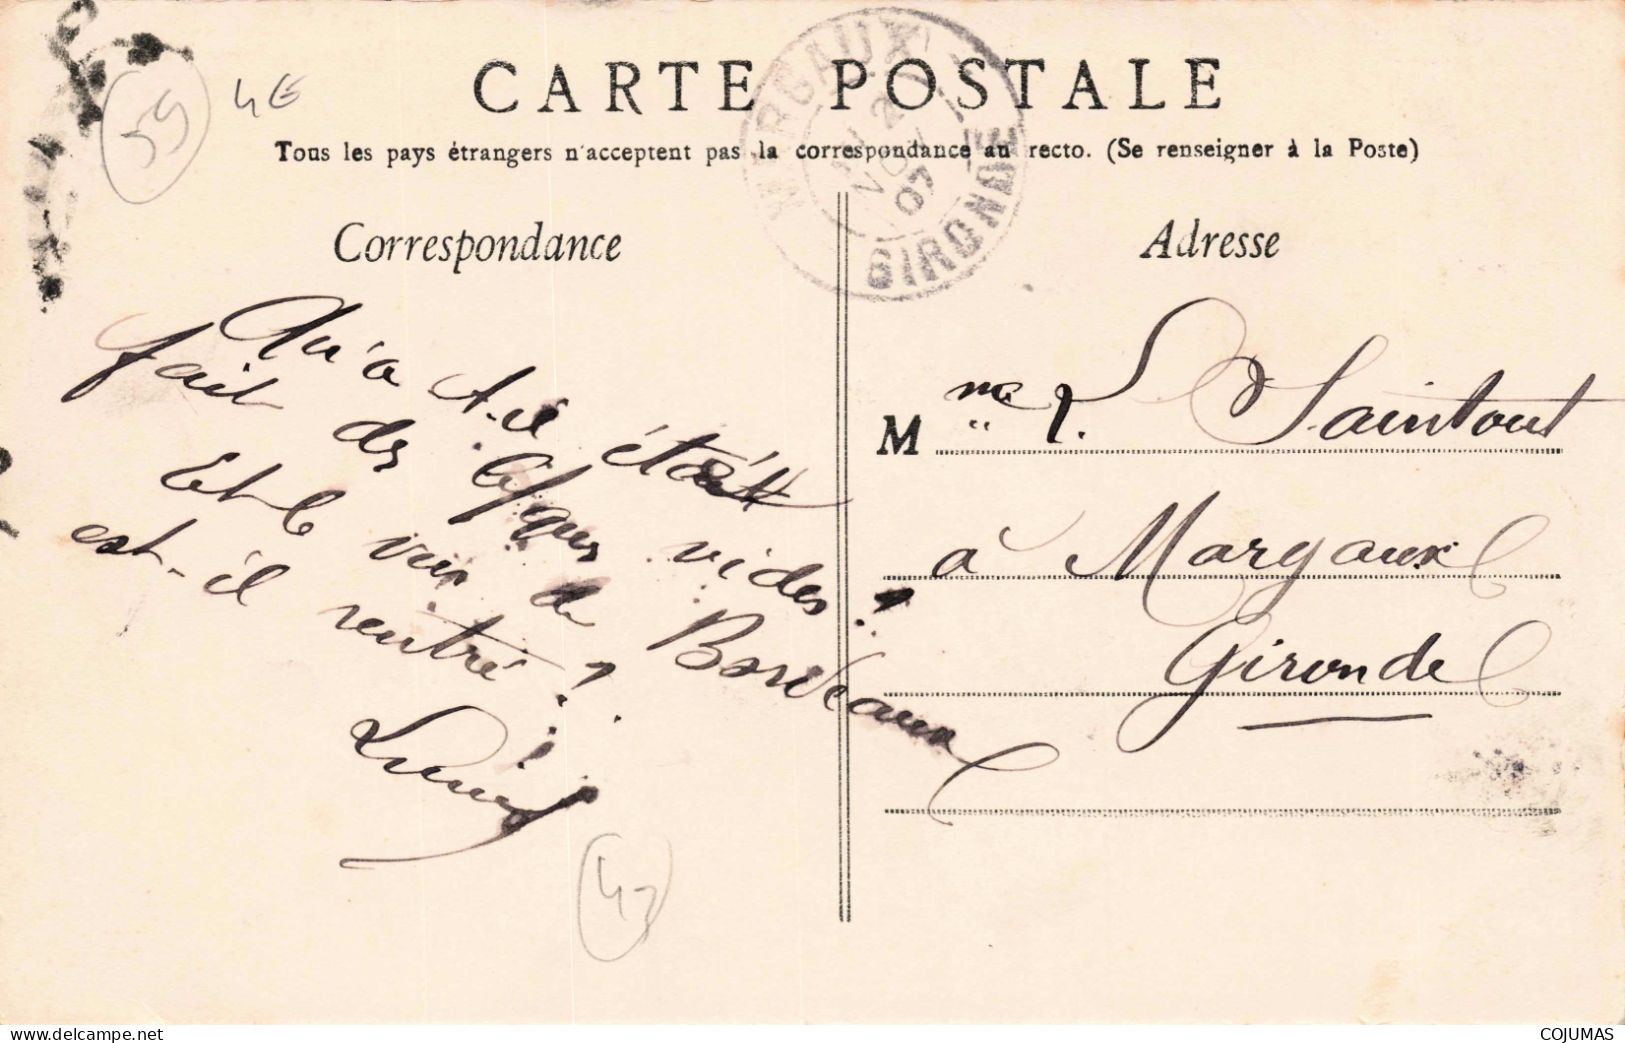 CARTE POSTALE
Tous les pays étrangers n'acceptent pas la correspondance au recto. (Se renseigner à la Poste)
MARGAUX
2
NOV
07
GIRONDE
59
4€
Correspondance
Qu'a t-il était
fait des vides ?
Et le vin de Bordeaux
est-il rentré ?
Louis
42
Adresse
Mme Saintout
à Margaux
Gironde
www.delcampe.net
COJUMAS